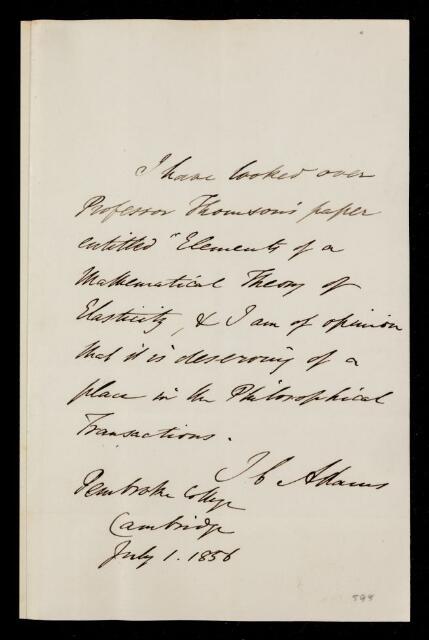 I have looked over
Professor Thomson's paper
entitled "Elements of a
Mathematical Theory of
Elasticity, & I am of opinion
that it is deserving of a
place in the Philosophical
Transactions.
J C Adams
Pembroke College
Cambridge
July 1. 1856